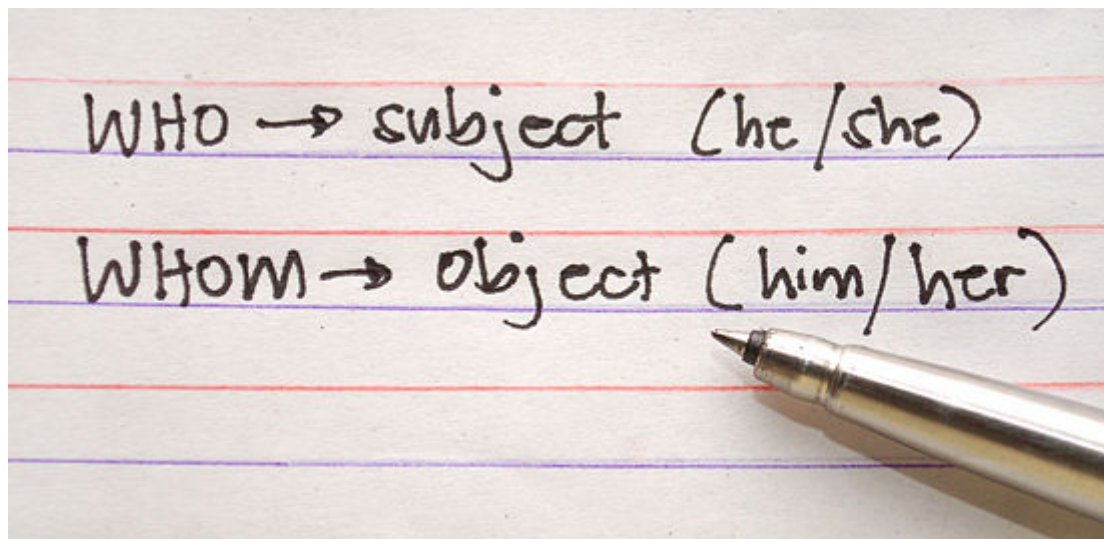 WHO → subject (he/she)
WHOM → object (him/her)